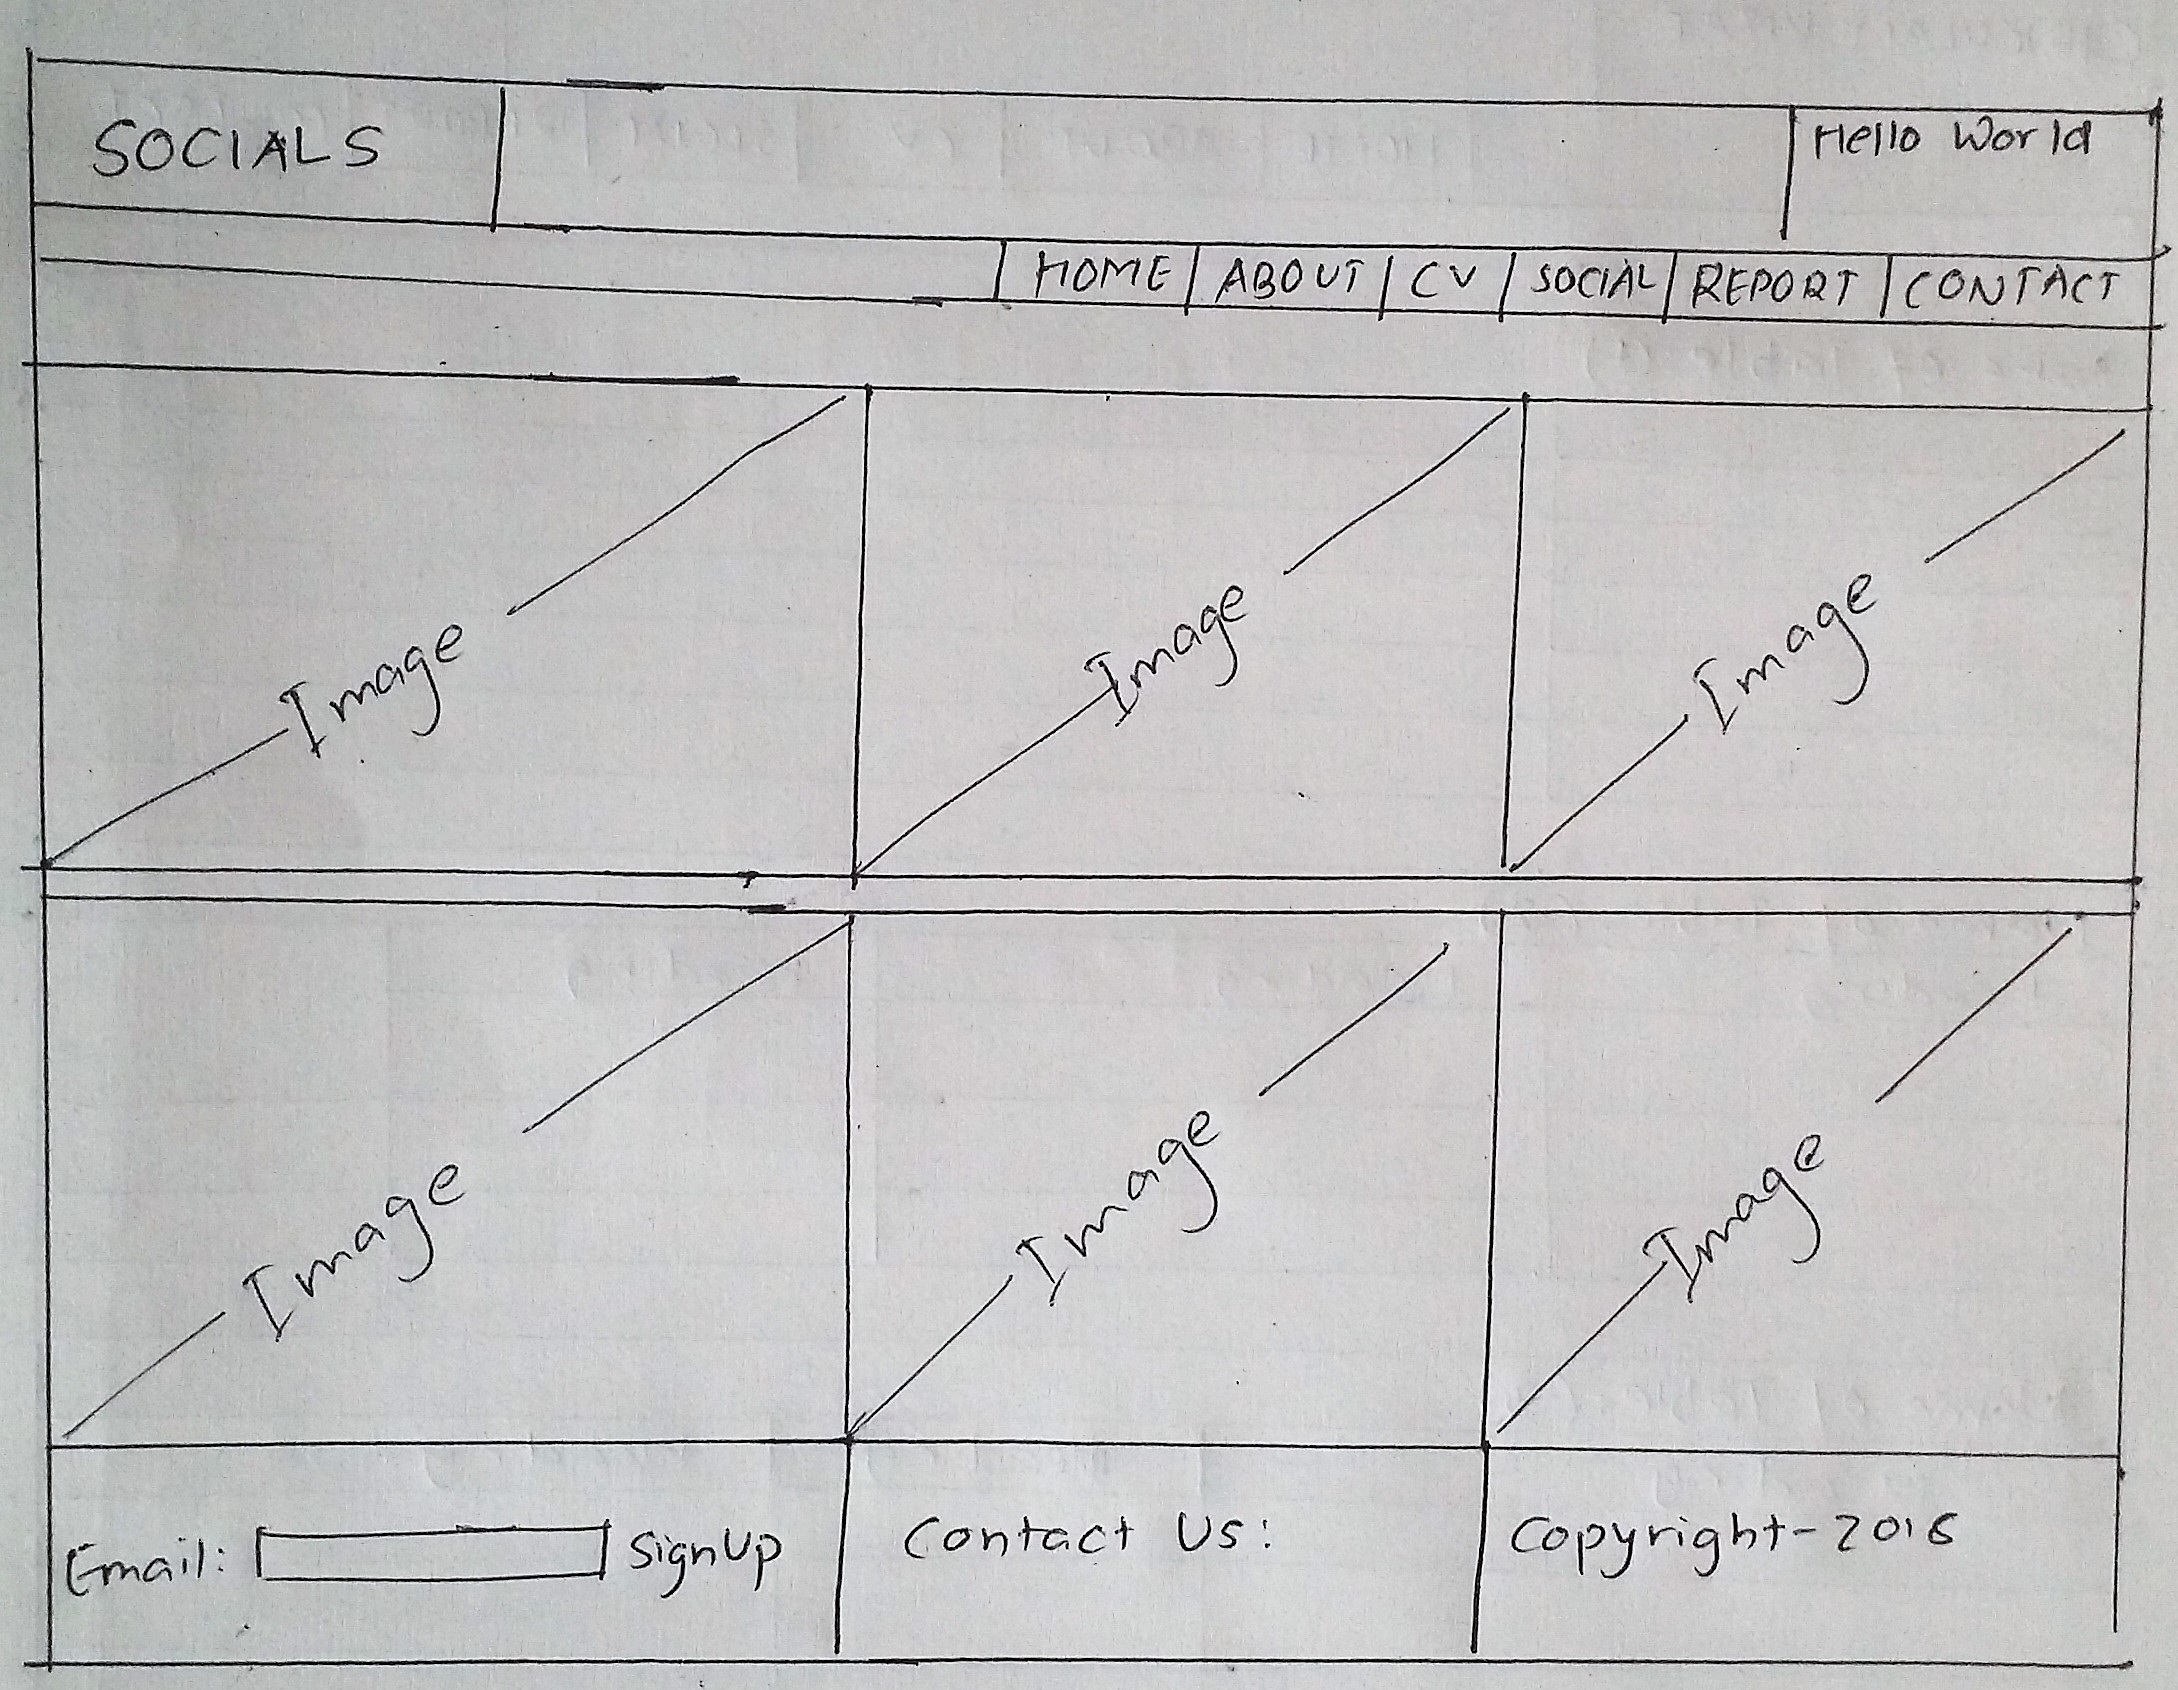 SOCIALS
Hello World
HOME ABOUT CV SOCIAL REPORT CONTACT
Image Image Image
Image Image Image
Email: SignUp Contact Us: Copyright-2016